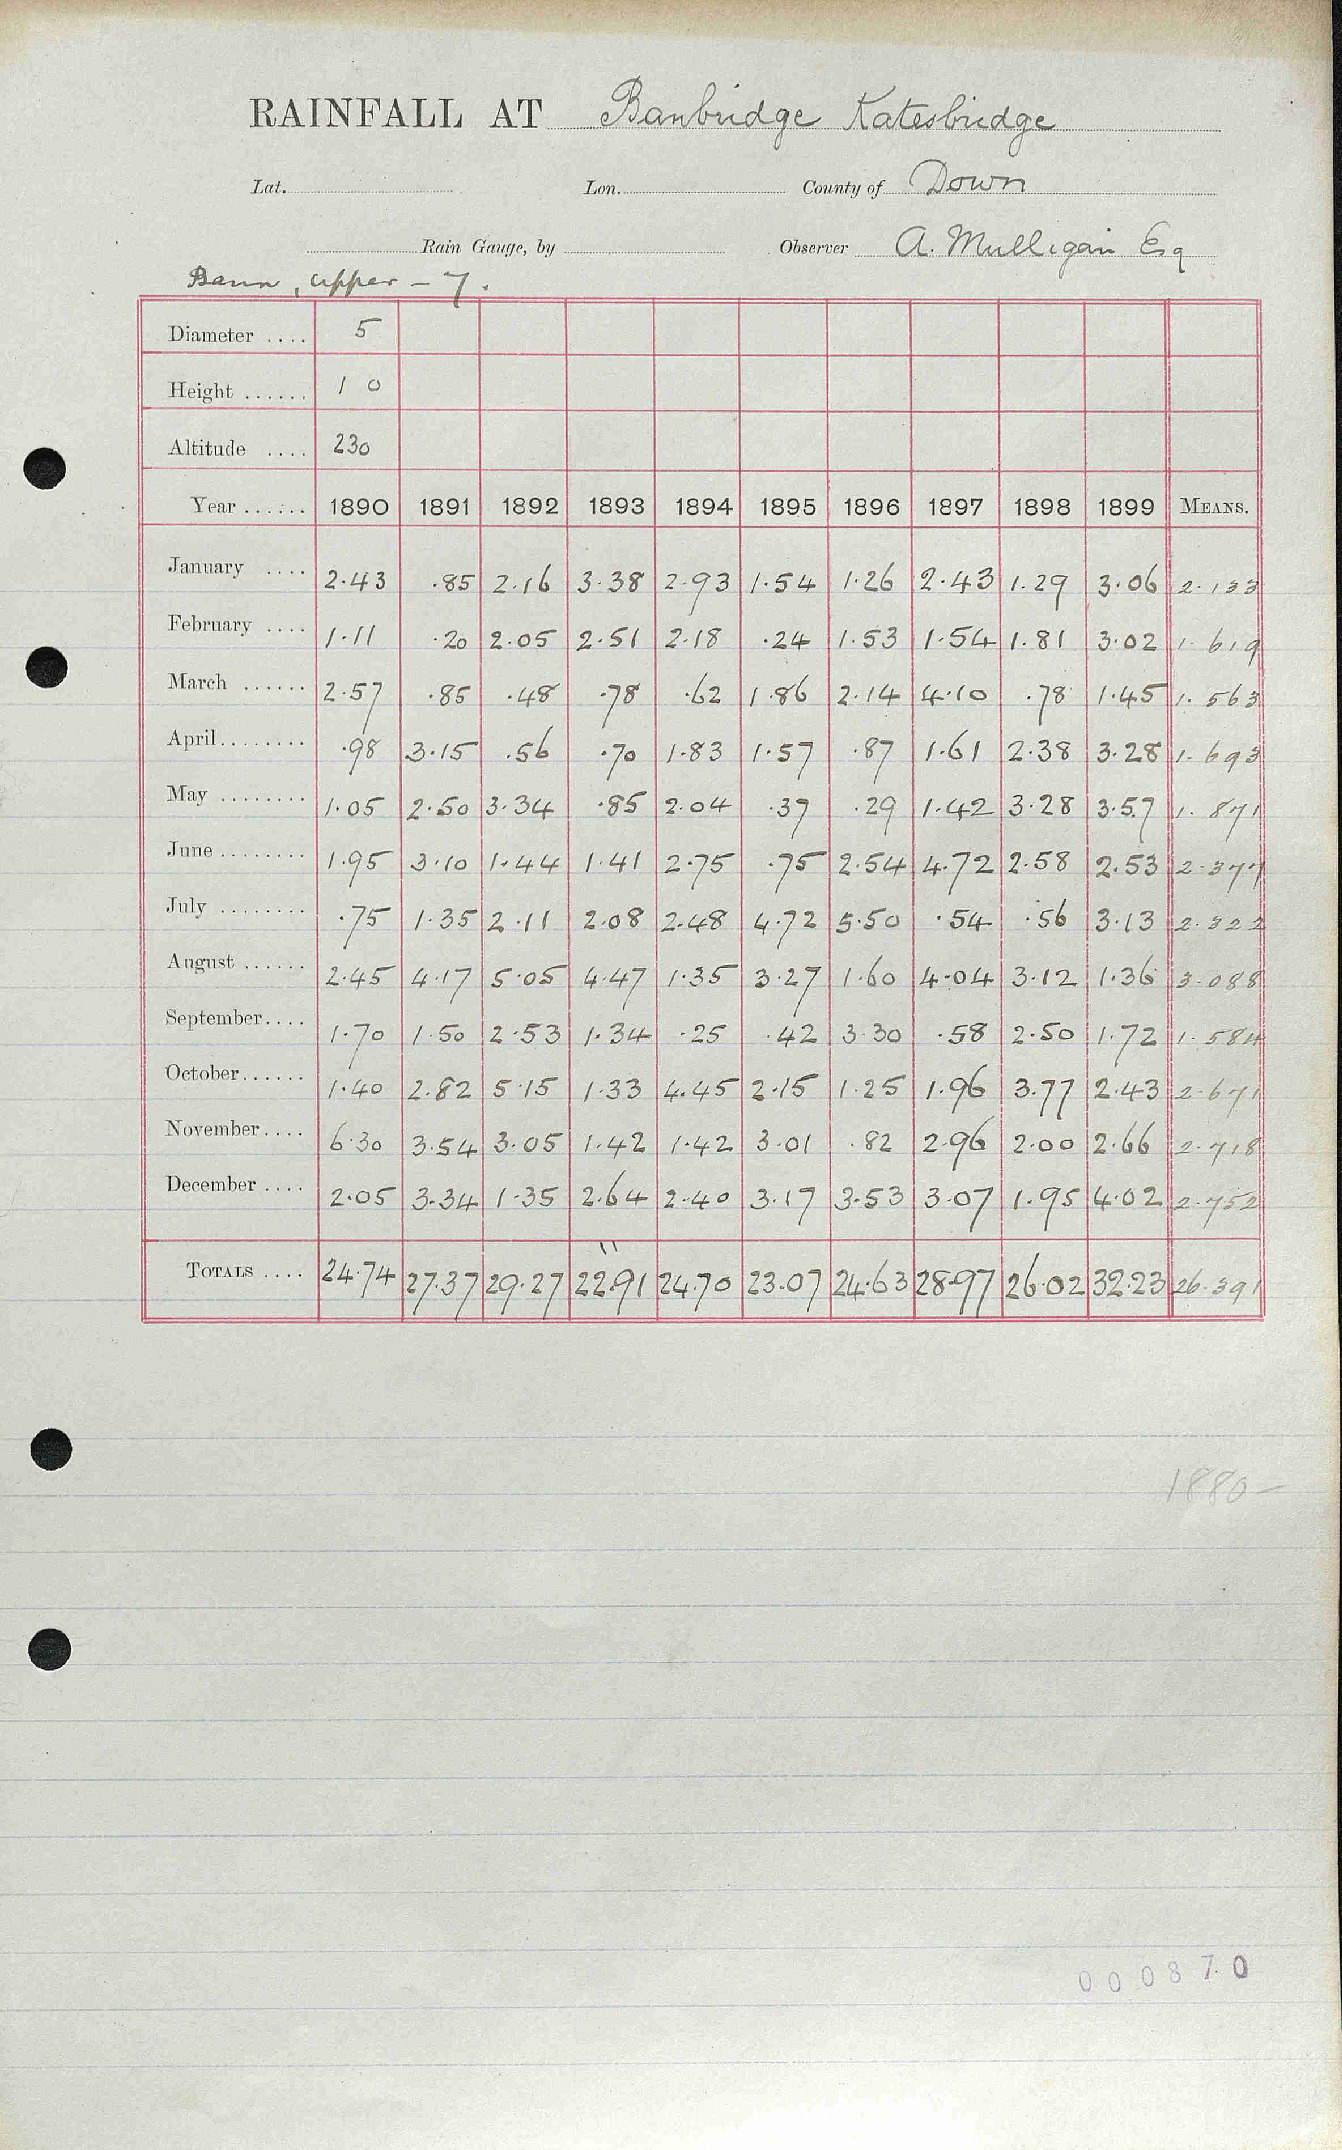 RAINFALL AT Banbridge Katesbridge
Lat. Lon. County of Down
Rain Gauge, by Observer A. Mulligan Esq
Bann, Upper - 7.
Diameter .... 5
Height ...... 1 0
Altitude .... 230
Year ...... 1890 1891 1892 1893 1894 1895 1896 1897 1898 1899 MEANS.
January .... 2.43 .85 2.16 3.38 2.93 1.54 1.26 2.43 1.29 3.06 2.133
February .... 1.11 .20 2.05 2.51 2.18 .24 1.53 1.54 1.81 3.02 1.619
March ...... 2.57 .85 .48 .78 .62 1.86 2.14 4.10 .78 1.45 1.563
April........ .98 3.15 .56 .70 1.83 1.57 .87 1.61 2.38 3.28 1.693
May ........ 1.05 2.50 3.34 .85 2.04 .37 .29 1.42 3.28 3.57 1.871
June ........ 1.95 3.10 1.44 1.41 2.75 .75 2.54 4.72 2.58 2.53 2.377
July ........ .75 1.35 2.11 2.08 2.48 4.72 5.50 .54 .56 3.13 2.322
August ...... 2.45 4.17 5.05 4.47 1.35 3.27 1.60 4.04 3.12 1.36 3.088
September.... 1.70 1.50 2.53 1.34 .25 .42 3.30 .58 2.50 1.72 1.584
October...... 1.40 2.82 5.15 1.33 4.45 2.15 1.25 1.96 3.77 2.43 2.671
November.... 6.30 3.54 3.05 1.42 1.42 3.01 .82 2.96 2.00 2.66 2.718
December .... 2.05 3.34 1.35 2.64 2.40 3.17 3.53 3.07 1.95 4.02 2.752
TOTALS .... 24.74 27.37 29.27 22.91 24.70 23.07 24.63 28.97 26.02 32.23 26.391
1880-
000870